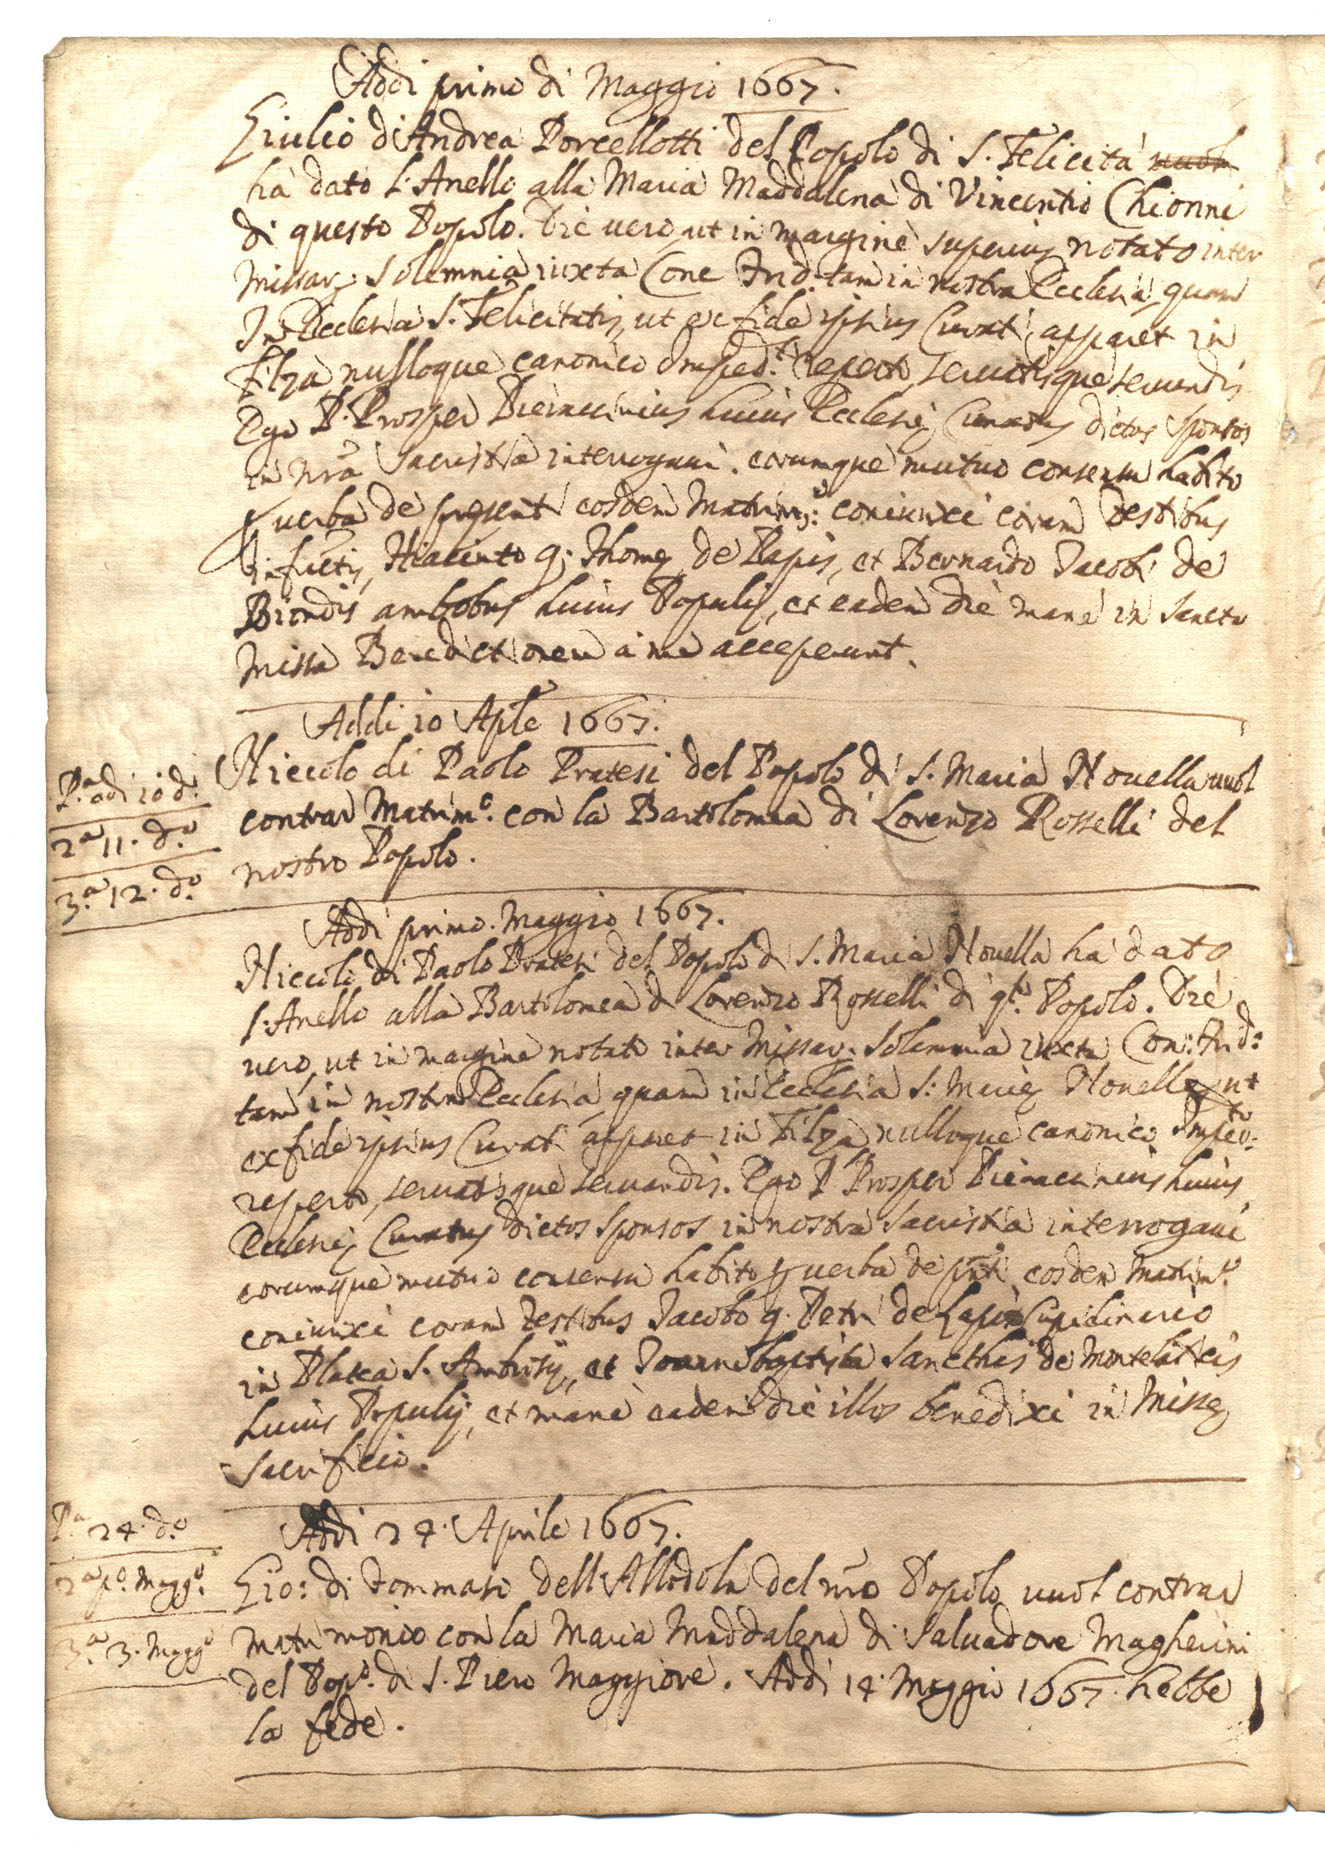 Addi primo di Maggio 1667.
Giulio di Andrea Porcellotti del Popolo di S. Felicità vuol
hà dato l'Anello alla Maria Maddalena di Vincentio Chionni
di questo Popolo. Die vero, ut in margine superius notato inter
Missar. Solemnia iuxta Conc. Trid. tam in nostra Ecclesia, quam
In Ecclesia S. Felicitatis, ut ex fide ipsius Curati apparet in
Filza nulloque canonico Imped.to reperto, servatisque servandis
Ego P. Prosper Pieraccinius huius Ecclesie Curatus dictos sponsos
in nra Sacristia interrogavi. eorumque mutuo consensu habito
p verba de presenti eosdem Matrim.o: coniunxi coram Testibus
infrtis, Hiacinto q. Thome de Papis, et Bernardo Jacobi de
Biondis ambobus huius Populi, et eadem die mane in Sancto
Missa Benedictionem a me acceperunt.
Addi 10 Aple 1667.
P.a adi 10 d.o
2.a 11. d.o
3.a 12. d.o
Niccolo di Paolo Pratesi del Popolo di S. Maria Novella vuol
contrar Matrim.o con la Bartolomea di Lorenzo Rosselli del
nostro Popolo.
Addi primo. Maggio 1667.
Niccolò di Paolo Pratesi del Popolo di S. Maria Novella ha dato
l'Anello alla Bartolomea di Lorenzo Rosselli di q.to Popolo. Die
vero, ut in margine notato inter Missar. Solemnia iuxta Con: Trid:
tam in nostra Ecclesia quam in Ecclesia S: Marie Novelle ut
ex fide ipsius Curati apparet in Filza nulloque canonico Imped.to
reperto, servatisque servandis. Ego P. Prosper Pieraccinius huius
Ecclesie Curatus dictos sponsos in nostra Sacristia interrogavi
eorumque mutuo consensu habito p verba de pnti eosdem Matrim.o
coniunxi coram Testibus Jacobo q. Petri de Lapis Cupidinario
in Platea S. Ambrosij, et Joannebaptista de Montelaticis
huius Populi, et mane eadem die illos benedixi in Misse
Sacrificio.
Addi 24. Aprile 1667.
P.a 24. d.o
2.a p.o Magg.o
3.a 3. Magg.o
Gio: di Tommaso dell'Allodola del nro Popolo vuol contrar
matrimonio con la Maria Maddalena di Salvadore Magherini
del Pop.o di S. Piero Maggiore. Addi 14 Maggio 1667. hebbe
la fede.